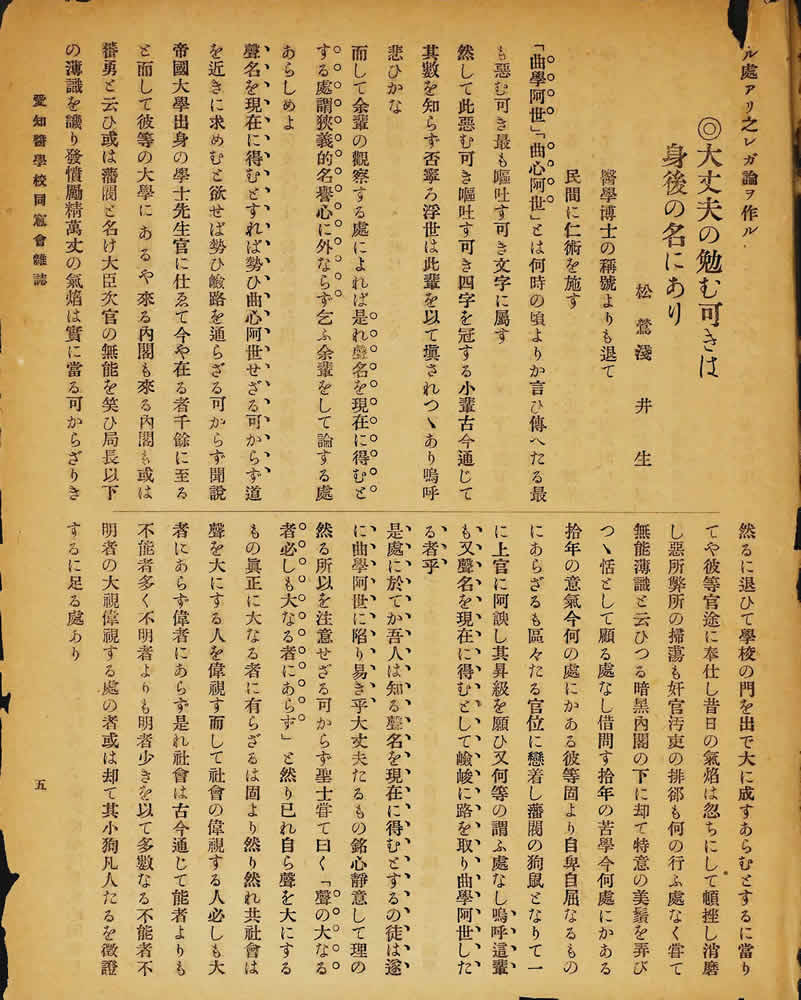 ル處アリ之レガ論ヲ作ル
◎大丈夫の勉む可きは
身後の名にあり
松鶯淺井生
醫學博士の稱號よりも退て
民間に仁術を施す
「曲學阿世」「曲心阿世」とは何時の頃よりか言ひ傳へたる最
も惡む可き最も嘔吐す可き文字に屬す
然して此惡む可き嘔吐す可き四字を冠する小輩古今通じて
其數を知らず否寧ろ浮世は此輩を以て塡されつヽあり嗚呼
悲ひかな
而して余輩の觀察する處によれば是れ聲名を現在に得むと
する處謂狹義的名譽心に外ならず乞ふ余輩をして論する處
あらしめよ
聲名を現在に得むとすれば勢ひ曲心阿世せざる可からず道
を近きに求めむと欲せば勢ひ嶮路を通らざる可からず聞說
帝國大學出身の學士先生官に仕ゑて今や在る者千餘に至る
と而して彼等の大學にあるや來る內閣も來る內閣も或は
蕃勇と云ひ或は藩閥と名け大臣次官の無能を笑ひ局長以下
の薄識を譏り發憤勵精萬丈の氣焰は實に當る可からざりき
然るに退ひて學校の門を出で大に成すあらむとするに當り
てや彼等官途に奉仕し昔日の氣焰は忽ちにして頓挫し消磨
し惡所弊所の掃蕩も奸官汚吏の排郤も何の行ふ處なく甞て
無能薄識と云ひつる暗黑內閣の下に却て特意の美鬚を弄び
つヽ恬として顧る處なし借問す拾年の苦學今何處にかある
拾年の意氣今何の處にかある彼等固より自卑自屈なるもの
にあらざるも區々たる官位に戀着し藩閥の狗鼠となりて一
に上官に阿諛し其昇級を願ひ又何等の謂ふ處なし嗚呼這輩
も又聲名を現在に得むとして嶮峻に路を取り曲學阿世した
る者乎
是處に於てか吾人は知る聲名を現在に得むとするの徒は遂
に曲學阿世に陷り易き乎大丈夫たるもの銘心靜意して理の
然る所以を注意せざる可からず聖士甞て曰く「聲の大なる
者必しも大なる者にあらず」と然り已れ自ら聲を大にする
もの眞正に大なる者に有らざるは固より然り然れ共社會は
聲を大にする人を偉視す而して社會の偉視する人必しも大
者にあらず偉者にあらず是れ社會は古今通じて能者よりも
不能者多く不明者よりも明者少きを以て多數なる不能者不
明者の大視偉視する處の者或は却て其小狗凡人たるを徵證
するに足る處あり
愛知醫學校同窓會雜誌
五